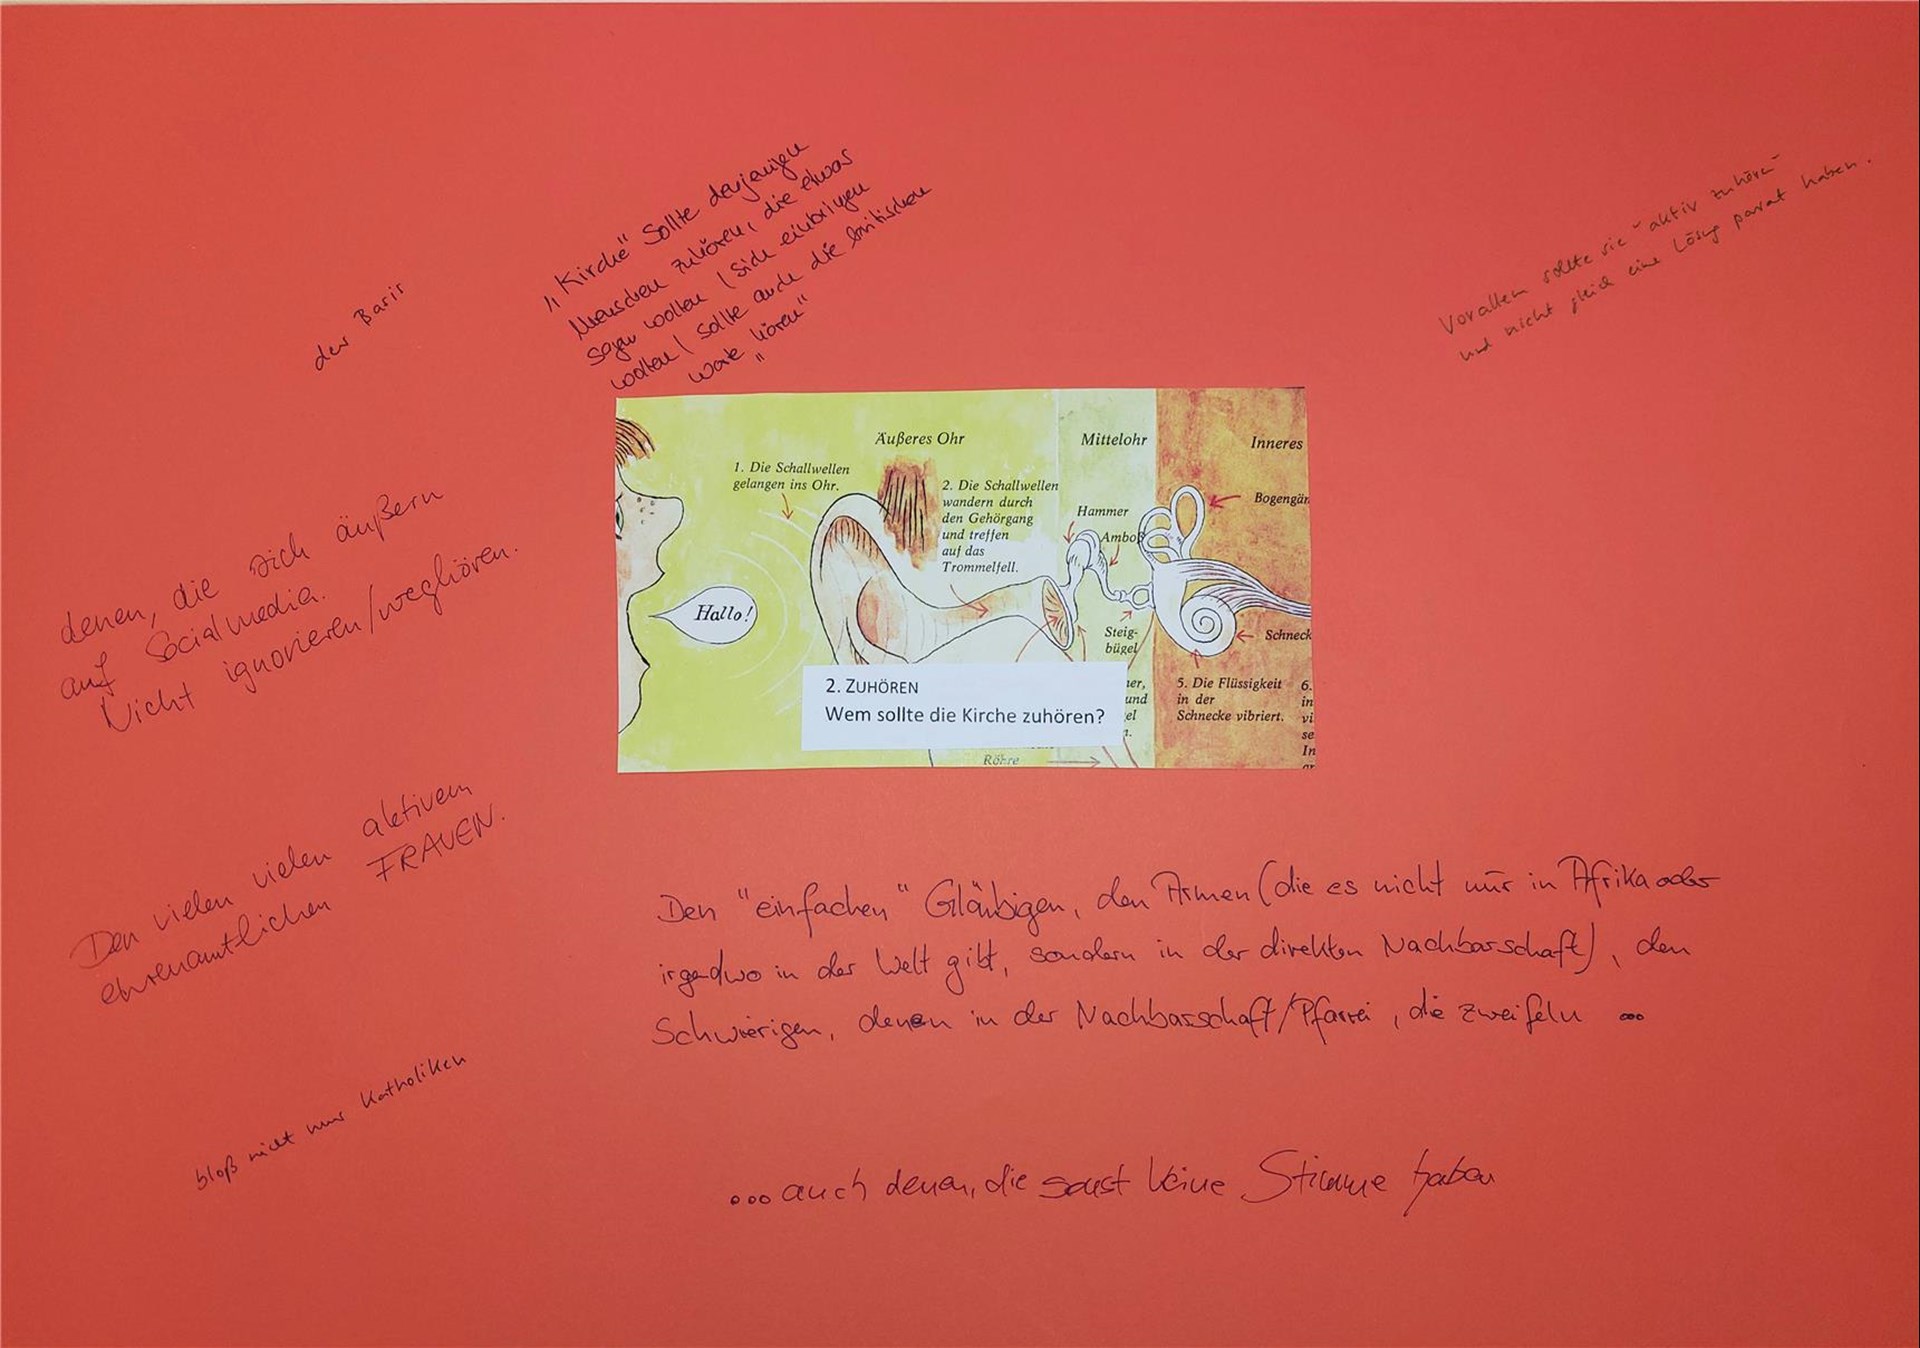 „Kirche" sollte denjenigen
Menschen zuhören, die etwas
sagen wollen / sich einbringen
wollen / sollte auch die kritischen
Worte „hören"
Vorallem sollte sie - aktiv zuhören -
und nicht gleich eine Lösung parat haben.
der Basis
Äußeres Ohr
Mittelohr
Inneres
1. Die Schallwellen
gelangen ins Ohr.
2. Die Schallwellen
wandern durch
den Gehörgang
und treffen
auf das
Trommelfell.
Hammer
Amboß
Bogengän
Hallo!
Steig-
bügel
Schneck
5. Die Flüssigkeit
in der
Schnecke vibriert.
6.
in
vi
se
In
ner,
und
el
n.
Röhre
2. ZUHÖREN
Wem sollte die Kirche zuhören?
denen, die sich äußern
auf Socialmedia.
Nicht ignorieren/weghören.
Den vielen vielen aktivem
ehrenamtlichen FRAUEN.
bloß nicht nur Katholiken
Den "einfachen" Gläubigen, den Armen (die es nicht nur in Afrika oder
irgendwo in der Welt gibt, sondern in der direkten Nachbarschaft), den
Schwierigen, denen in der Nachbarschaft/Pfarrei, die zweifeln ...
... auch denen, die sonst keine Stimme haben